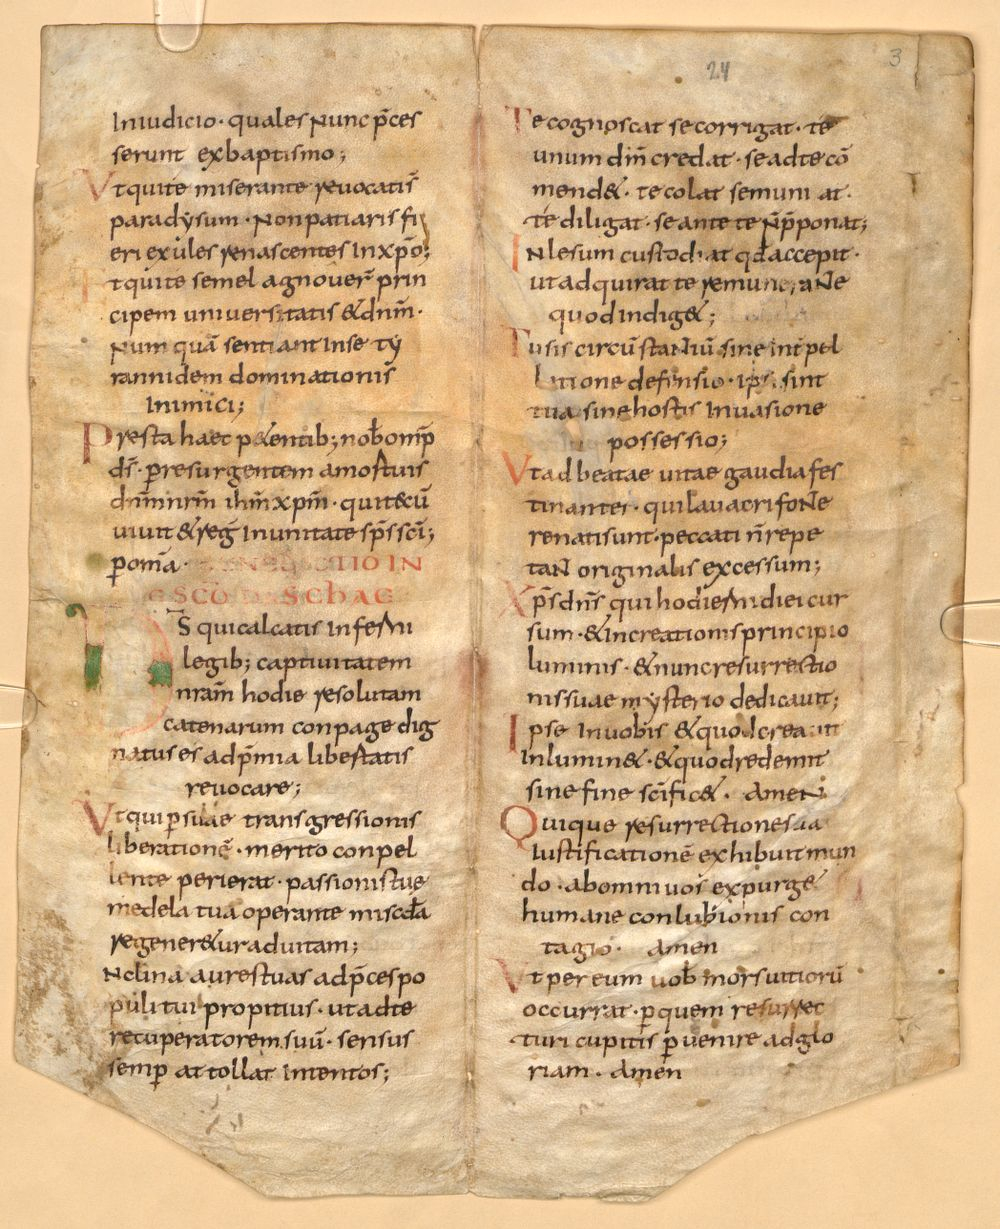 24
3
Iniudicio· quales Nunc p̄ces
serunt exbaptismo;
Vt quite miserante reuocatis
paradysum· Nonpatiaris fi
eri exules renascentes Inxp̄o;
t quite semel agnouer̄ prin
cipem uniuersitatis &dn̄m·
Num quā sentiant Inse ty
rannidem dominationis
Inimici;
Presta haec p&entib; nob̄ omp̄
ds̄· per resurgentem a mortuis
dn̄m nr̄m ih̄m xp̄m· quitecū
uiuit &reḡ Inunitate sp̄s sc̄i;
p̄ om̄a·
BENEDICTIO IN
SC̄O PASCHAE
DS̄ qui calcatis Infer Ni
legib; captiuitatem
nram̄ hodie resolutam
catenarum conpage dig
natus es adp̄mia libertatis
reuocare;
Vt qui p̄ suae transgressionis
liberationē· merito conpel
lente perierat· passionis tue
medela tua operante
regener&ur aduitam;
Nclina aures tuas adp̄ces po
puli tui propitius· ut adte
recuperatorem suū· sensus
semp̄ attollat Intentos;
Te cognoscat se corrigat· te
unum dn̄m credat· se adte cō
mend&· te colat semuni at·
te diligat· se ante te N̄ p̄ponat;
INlesum custodiat qd̄ accepit·
ut adquirat te remuneraNte
quod indig&;
Tu sis circūstaNtiū sine Int̄pel
latione defensio· ipsi sint
tua sine hostis Inuasione
possessio;
Vt ad beatae uitae gaudia fes
tinantes· qui lauacri foNte
renati sunt· peccati n̄ repe
taNt originalis excessum;
Xp̄s dn̄s qui hodierni diei cur
sum· &increationis principio
luminis· &nunc resurrectio
nis suae mysterio dedicauit;
Ipse Inuobis &quod creauit
Inlumin&· &quod redemit
sine fine sc̄ific&· ameN
Quique resurrectione sua
Iustificationē exhibuit mun
do· ab omni uos expurg&
humane conlubionis con
tagio· amen
Vt per eum uob̄ mors uitiorū
occurrat· p̄ quem resurrec
turi cupitis p̄uenire adglo
riam· amen